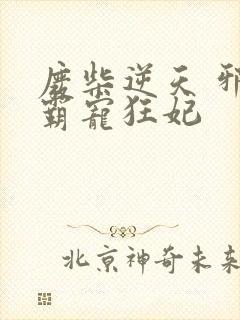 废柴逆天 邪
霸宠狂妃
北京神奇未来